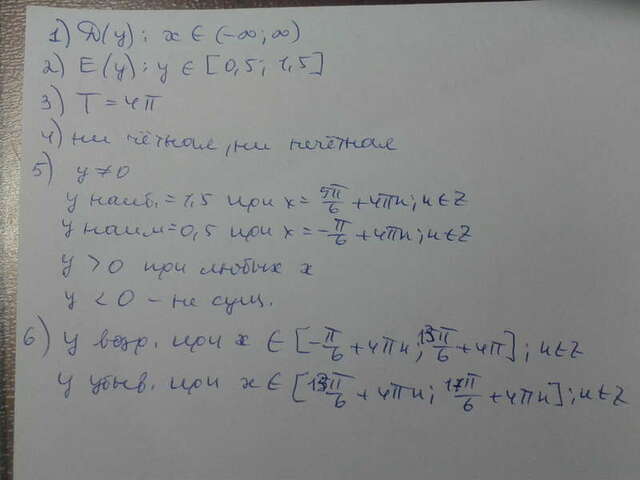 1) D(y): x ∈ (-∞; ∞)
2) E(y): y ∈ [0,5; 1,5]
3) T = 4π
4) ни чётная, ни нечётная
5) y ≠ 0
y наиб. = 1,5 при x = 5π/6 + 4πn; n ∈ Z
y наим = 0,5 при x = -π/6 + 4πn; n ∈ Z
y > 0 при любых x
y < 0 - не сущ.
6) y возр. при x ∈ [-π/6 + 4πn; 13π/6 + 4π]; n ∈ Z
y убыв. при x ∈ [13π/6 + 4πn; 17π/6 + 4πn]; n ∈ Z